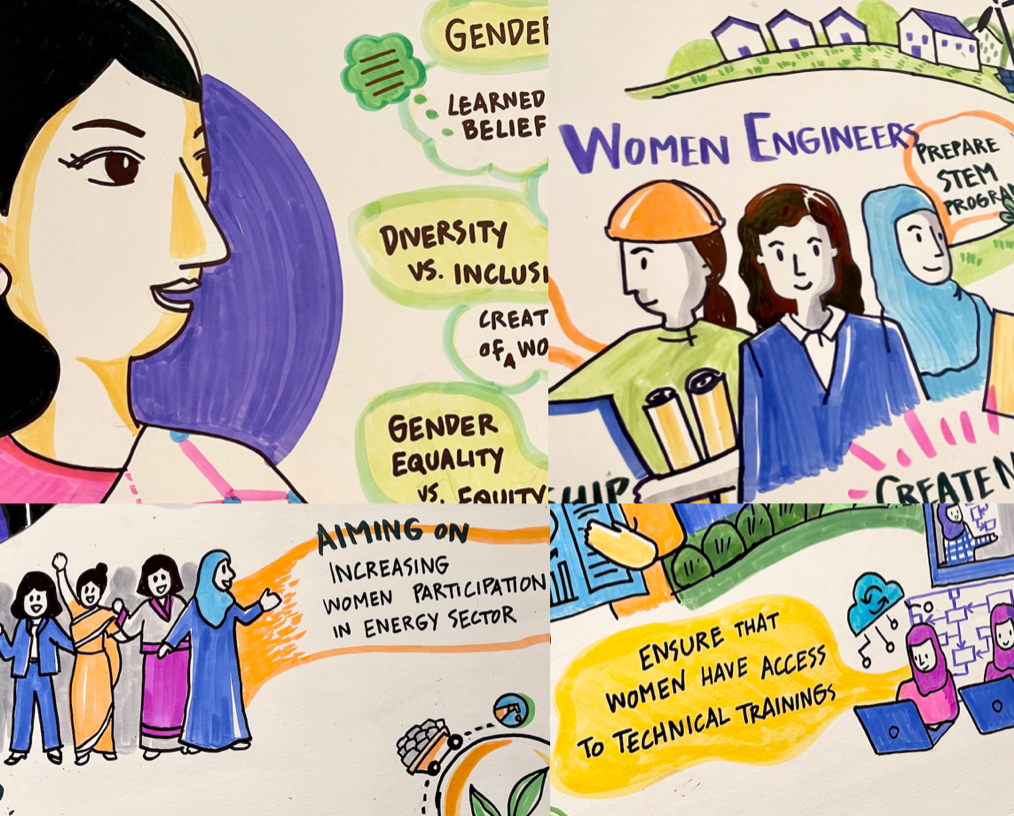 GENDE
LEARNED
BELIEF
DIVERSITY
VS. INCLUSI
CREAT
OF A WO
GENDER
EQUALITY
VS. EQUITY
WOMEN ENGINEERS
PREPARE
STEM
PROGRA
HIP
CREATE N
AIMING ON
INCREASING
WOMEN PARTICIPATION
IN ENERGY SECTOR
ENSURE THAT
WOMEN HAVE ACCESS
TO TECHNICAL TRAININGS